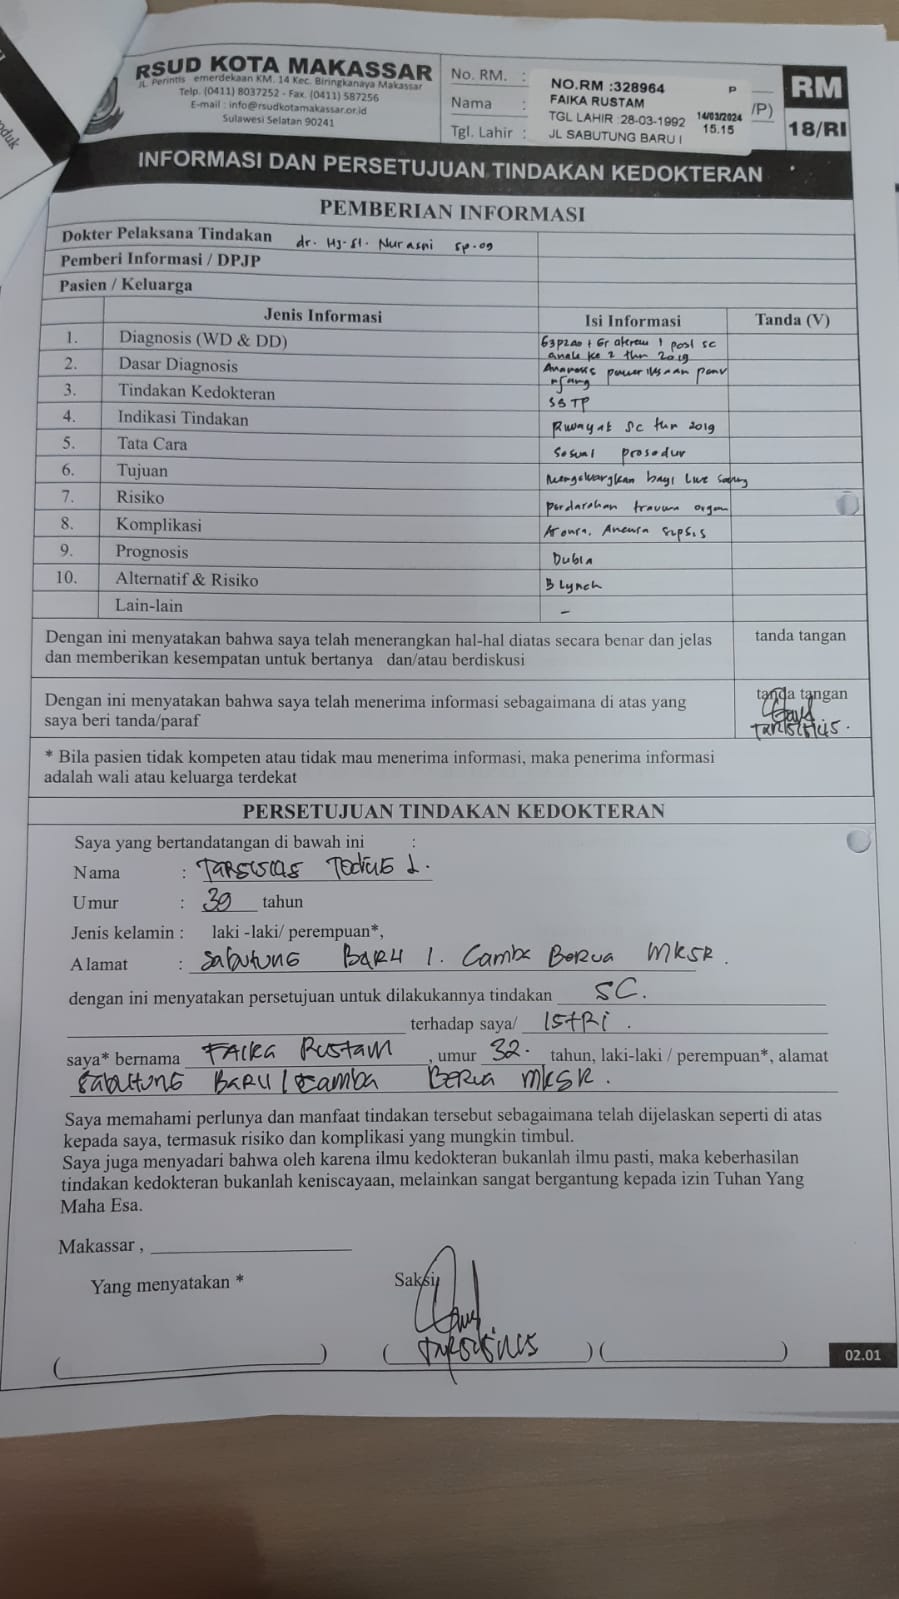 RSUD KOTA MAKASSAR
JL. Perintis emerdekaan KM. 14 Kec. Biringkanaya Makassar
Telp. (0411) 8037252 - Fax. (0411) 587256
E-mail : info@rsudkotamakassar.or.id
Sulawesi Selatan 90241
No. RM. :
Nama :
Tgl. Lahir :
NO.RM :328964 P
FAIKA RUSTAM
TGL LAHIR :28-03-1992
JL SABUTUNG BARU I
14/03/2024
15.15
/P)
RM
18/RI
INFORMASI DAN PERSETUJUAN TINDAKAN KEDOKTERAN
PEMBERIAN INFORMASI
Dokter Pelaksana Tindakan dr. Hj. St. Nur asni Sp.OG
Pemberi Informasi / DPJP
Pasien / Keluarga
Jenis Informasi Isi Informasi Tanda (V)
1. Diagnosis (WD & DD) G3P2A0 + Gr aterm + post SC
anak ke 2 thn 2019
2. Dasar Diagnosis
3. Tindakan Kedokteran SSTP
4. Indikasi Tindakan Riwayat SC thn 2019
5. Tata Cara Sesuai prosedur
6. Tujuan Mengeluarkan bayi
7. Risiko perdarahan trauma organ
8. Komplikasi sepsis
9. Prognosis Dubia
10. Alternatif & Risiko B Lynch
Lain-lain –
Dengan ini menyatakan bahwa saya telah menerangkan hal-hal diatas secara benar dan jelas
dan memberikan kesempatan untuk bertanya dan/atau berdiskusi
tanda tangan
Dengan ini menyatakan bahwa saya telah menerima informasi sebagaimana di atas yang
saya beri tanda/paraf
tanda tangan
* Bila pasien tidak kompeten atau tidak mau menerima informasi, maka penerima informasi
adalah wali atau keluarga terdekat
PERSETUJUAN TINDAKAN KEDOKTERAN
Saya yang bertandatangan di bawah ini :
Nama : TARSISIUS
Umur : 39 tahun
Jenis kelamin : laki -laki/ perempuan*,
Alamat : Sabutung BARU 1. Camba Berua MKSR.
dengan ini menyatakan persetujuan untuk dilakukannya tindakan SC.
terhadap saya/ ISTRI.
saya* bernama FAIKA RUSTAM, umur 32. tahun, laki-laki / perempuan*, alamat
Sabutung BARU 1 Camba BERUA MKSR.
Saya memahami perlunya dan manfaat tindakan tersebut sebagaimana telah dijelaskan seperti di atas
kepada saya, termasuk risiko dan komplikasi yang mungkin timbul.
Saya juga menyadari bahwa oleh karena ilmu kedokteran bukanlah ilmu pasti, maka keberhasilan
tindakan kedokteran bukanlah keniscayaan, melainkan sangat bergantung kepada izin Tuhan Yang
Maha Esa.
Makassar ,
Yang menyatakan *
Saksi
TARSISIUS
( ) ( ) ( )
02.01